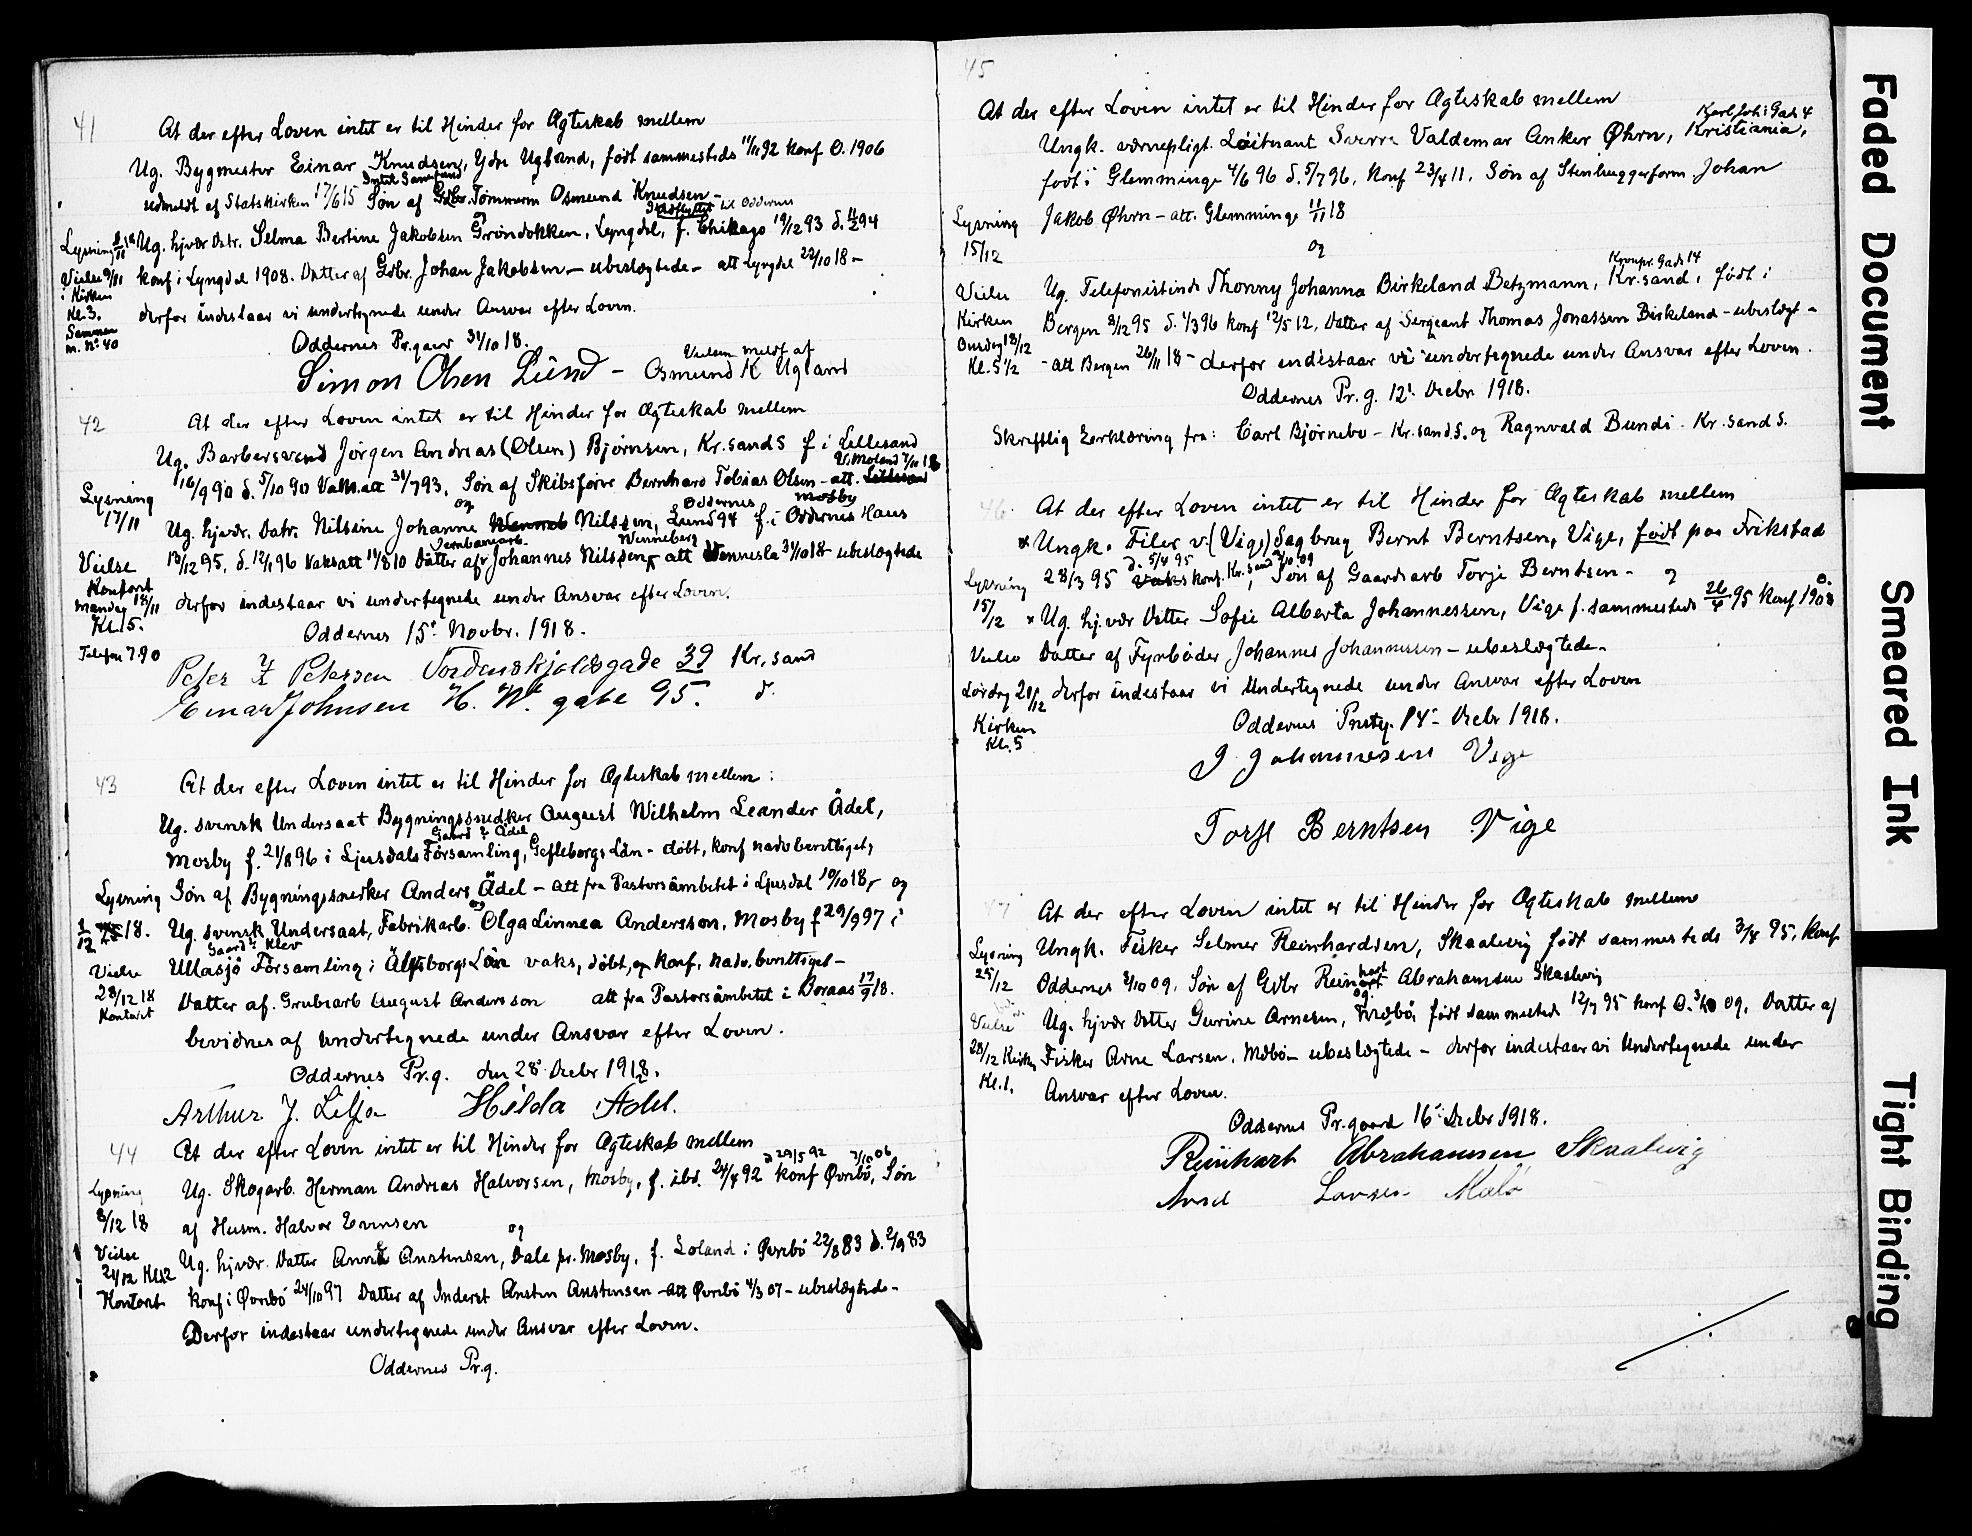 41
At der efter Loven intet er til Hinder for Ægteskab mellem
Ug. Bygmester Einar Knudsen, Ydre Ugland, født sammesteds 11/11 92 konf O. 1906
udmeldt af Statskirken 17/6 15 Søn af Gdbr. Tømmerm Osmund Knudsen -
og
Indflyttet til Oddernes
Lysning 3/11 18
Ug. hjvær. Datr. Selma Bertine Jakobsen Grøndokken, Lyngdal, f. Chikago 19/12 93 d. 11/2 94
Vielse 9/11
i Kirken
Kl. 3.
Sammen
m. No 40
konf i Lyngdal 1908. Datter af Gdbr. Johan Jakobsen - ubeslægtede - att Lyngdal 22/10 18 -
derfor indestaar vi undertegnede under Ansvar efter Loven.
Oddernes Pr.gaar 31/10 18.
Vielsen meldt af
Simon Olsen Lund - Osmund K Ugland
42
At der efter Loven intet er til Hinder for Ægteskab mellem
Ug. Barbersvend Jørgen Andreas (Olsen) Bjørnsen, Kr.sand S f i Lillesand
V. Moland 7/11 18
16/9 90 d. 5/10 90 Vaks.att 31/7 93. Søn af Skibsførve Bernhard Tobias Olsen - att. Lillesand
og
Oddernes
Mosby
Lysning
17/11
Ug. hjvær. Datr. Nilsine Johanne Nilssen, Lund 94 f. i Oddernes Haus
Jernbanearb.
Wenneberg
13/12 95, d. 12/1 96 Vaksatt 11/8 10 Datter af Johannes Nilssen, att Vennesla 31/10 18 - ubeslægtede
Vielse
Kontoret
Mandag 18/11
Kl. 5.
Telefon 790
derfor indestaar vi undertegnede under Ansvar efter Loven.
Oddernes 15. Novbr. 1918.
Peter F Petersen Tordenskjoldsgade 39 Kr. sand
Einar Johnsen H. W. gate 95. d.
43
At der efter Loven intet er til Hinder for Ægteskab mellem:
Ug. svensk Undersaat Bygningssnedker August Wilhelm Leander Ädel,
Gaard: Ädel
Mosby f. 21/8 96 i Ljusdals Församling, Gefleborgs Län - døbt, konf nadvberettiget,
Søn af Bygningssnedker Anders Ädel - att fra Pastorsämbetet i Ljusdal 10/10 18, og
Lysning
1/12 18.
Ug. svensk Undersaat, Fabrikarb. Olga Linnea Andersson, Mosby f 29/9 97 i
Gaard: Klev
Ullasjö Församling i Älfsborgs Län vaks, døbt, og konf. nadv. berettiget -
Vielse
28/12 18
Kontoret
Datter af. Grubearb August Andersson att fra Pastorsämbetet i Boraas 17/9 18.
bevidnes af undertegnede under Ansvar efter Loven.
Oddernes Pr.g. den 28. Decbr 1918.
Arthur J. Lilja Hilda Ädel.
44
At der efter Loven intet er til Hinder for Ægteskab mellem
d 29/5 92 7/10 06
Lysning
8/12 18
Ug. Skogarb. Herman Andreas Halvorsen, Mosby, f. ibd. 24/4 92 konf Øvrebö, Søn
af Husm. Halvor Evensen
og
Vielse
24/12 Kl 12
Kontoret
Ug. hjvær. Datter Anne Anstensen, Dale pr. Mosby, f. Loland i Øvrebö 22/8 83 d. 2/9 83
konf i Øvrebö 24/10 97 Datter af Inderst Ansten Anstensen - att Øvrebö 4/3 07 - ubeslægtede -
Derfor indestaar undertegnede under Ansvar efter Loven.
Oddernes Pr.g.
45
At der efter Loven intet er til Hinder for Ægteskab mellem
Karl Joh: Gade 4
Ungk. værnepligt. Løitnant Sverre Valdemar Anker Øhrn, Kristiania,
født i Glemminge 4/6 96 d. 5/7 96. konf 23/4 11. Søn af Stenhuggerform. Johan
Jakob Øhrn - att. Glemminge 11/11 18
Lysning
15/12
og
Kronpr. Gade 14
Vielse
Kirken
Onsdag 18/12
Kl. 5 1/2
Ug. Telefonistinde Thonny Johanna Birkeland Betzmann, Kr.sand, født i
Bergen 3/12 95 d. 1/3 96 konf 12/5 12, Datter af Sergeant Thomas Jonassen Birkeland - ubeslægt -
- att Bergen 26/11 18 - derfor indestaar vi undertegnede under Ansvar efter Loven.
Oddernes Pr. g. 12. Decbr 1918.
Skriftlig Erklæring fra: Carl Bjørnebo - Kr.sand.S. og Ragnvald Bundi. Kr.sand S.
46
At der efter Loven intet er til Hinder for Ægteskab mellem
Ungk. Filer v. (Vige) Sagbrug Bernt Berntsen, Vige, født paa Frikstad
d. 5/4 95
28/3 95 konf. Kr.sand 3/10 09, Søn af Gaardsarb Torje Berntsen - og
Lysning
15/12
Ug. hj.vær Datter Sofie Alberta Johannessen, Vige f. sammesteds 26/4 95 konf O. 1908
Vielse
Lørdag 21/12
Kirken
Kl. 5
Datter af Fyrbøder Johannes Johannessen - ubeslægtede -
derfor indestaar vi Undertegnede under Ansvar efter Loven
Oddernes Prstg. 14 - Decbr 1918.
J Johannesen Vige
Torje Berntsen Vige
47
At der efter Loven intet er til Hinder for Ægteskab mellem
Lysning
25/12
Ungk. Fisker Selmer Reinhardsen, Skaalevig født sammesteds 3/8 95, konf
Oddernes 3/10 09. Søn af Gdbr Reinhart Abrahamsen Skaalevig
og
Vielse
28/12 Kirken
Kl. 1.
Ug. hjvær Datter Gurine Arnesen, født sammesteds 12/7 95 konf O. 3/10 09, Datter af
Fisker Arne Larsen, Møbö - ubeslægtede - derfor indestaar vi Undertegnede under
Ansvar efter Loven.
Oddernes Pr.gaard 16 - Decbr 1918.
Reinhart Abrahamsen Skaalevig
Larsen
Faded Document
Smeared Ink
Tight Binding